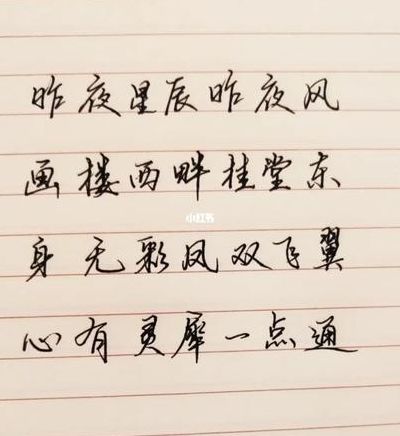 昨夜星辰昨夜风
画楼西畔桂堂东
小红书
身无彩凤双飞翼
心有灵犀一点通